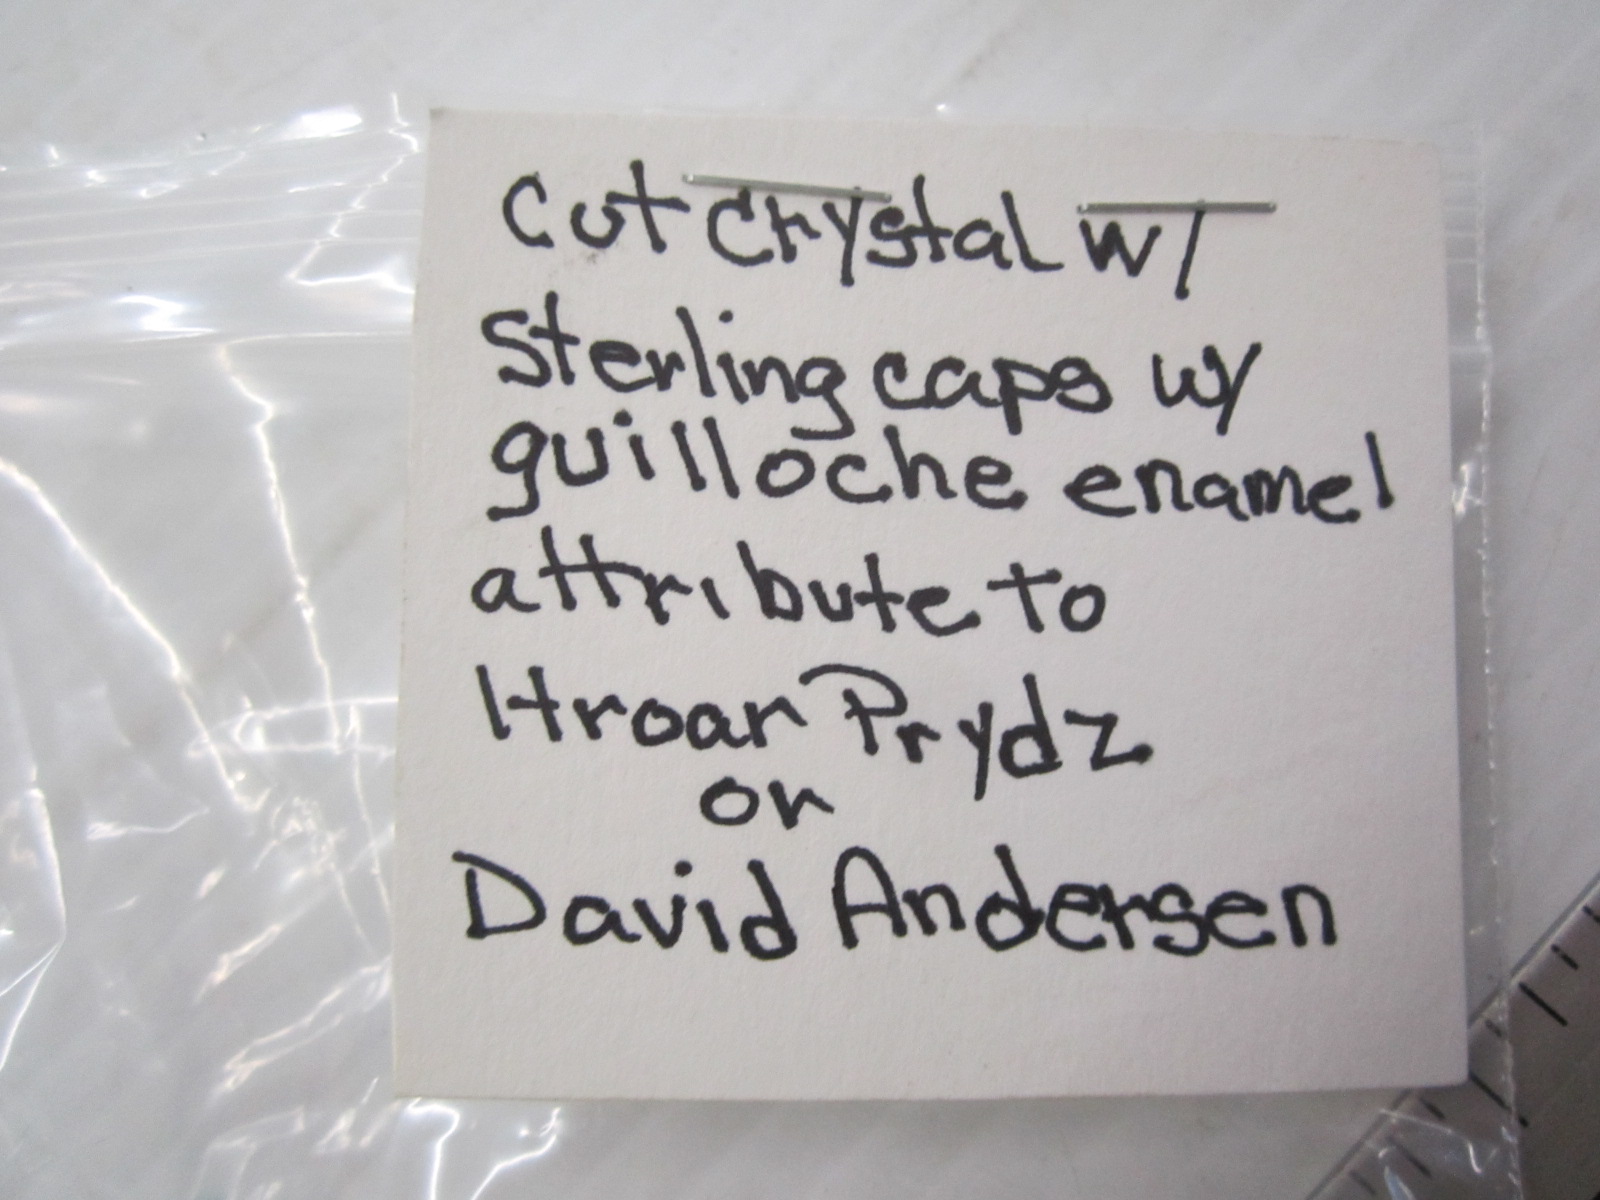 Cut Crystal w/
Sterling caps w/
guilloche enamel
attribute to
Hroar Prydz
or
David Andersen